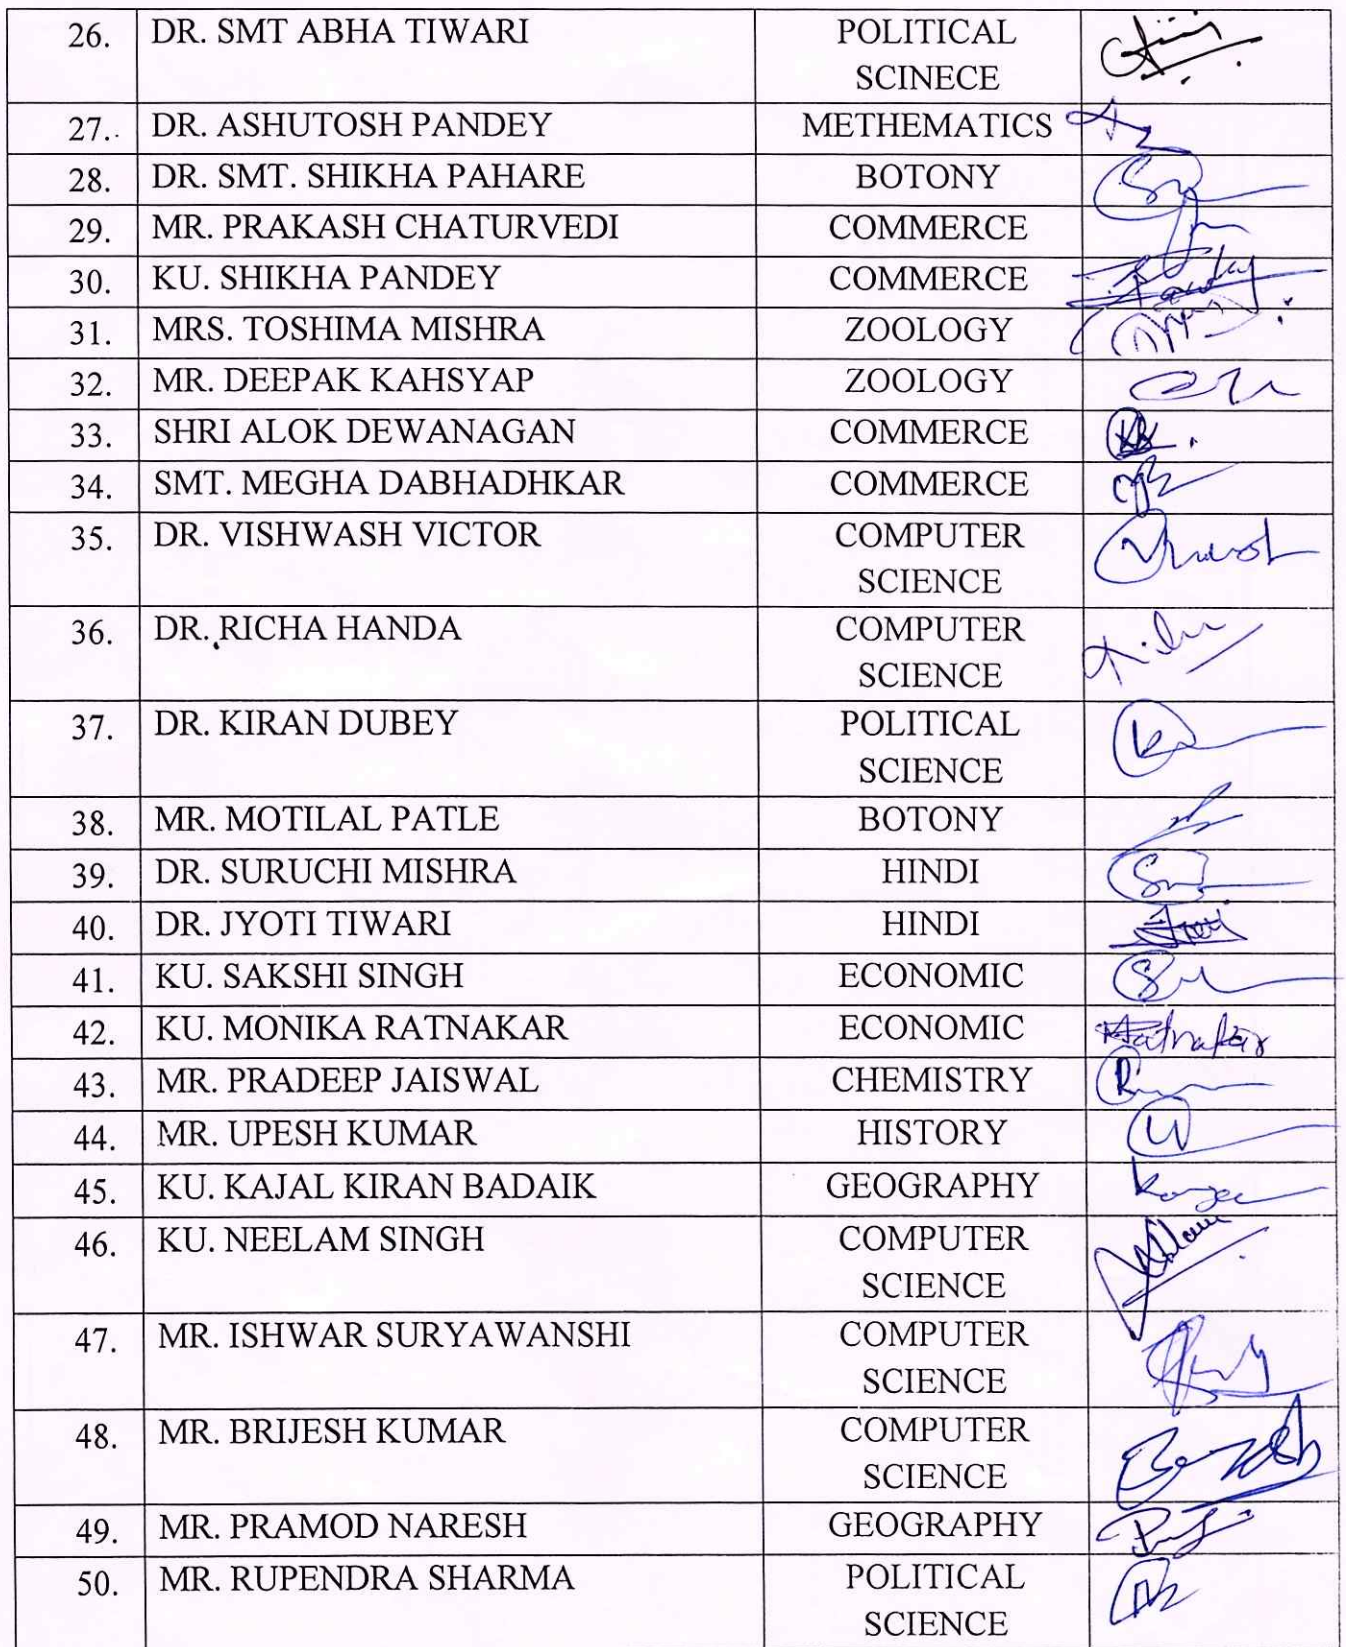 26. DR. SMT ABHA TIWARI POLITICAL
SCINECE
27. DR. ASHUTOSH PANDEY METHEMATICS
28. DR. SMT. SHIKHA PAHARE BOTONY
29. MR. PRAKASH CHATURVEDI COMMERCE
30. KU. SHIKHA PANDEY COMMERCE
31. MRS. TOSHIMA MISHRA ZOOLOGY
32. MR. DEEPAK KAHSYAP ZOOLOGY
33. SHRI ALOK DEWANAGAN COMMERCE
34. SMT. MEGHA DABHADHKAR COMMERCE
35. DR. VISHWASH VICTOR COMPUTER
SCIENCE
36. DR. RICHA HANDA COMPUTER
SCIENCE
37. DR. KIRAN DUBEY POLITICAL
SCIENCE
38. MR. MOTILAL PATLE BOTONY
39. DR. SURUCHI MISHRA HINDI
40. DR. JYOTI TIWARI HINDI
41. KU. SAKSHI SINGH ECONOMIC
42. KU. MONIKA RATNAKAR ECONOMIC
43. MR. PRADEEP JAISWAL CHEMISTRY
44. MR. UPESH KUMAR HISTORY
45. KU. KAJAL KIRAN BADAIK GEOGRAPHY
46. KU. NEELAM SINGH COMPUTER
SCIENCE
47. MR. ISHWAR SURYAWANSHI COMPUTER
SCIENCE
48. MR. BRIJESH KUMAR COMPUTER
SCIENCE
49. MR. PRAMOD NARESH GEOGRAPHY
50. MR. RUPENDRA SHARMA POLITICAL
SCIENCE